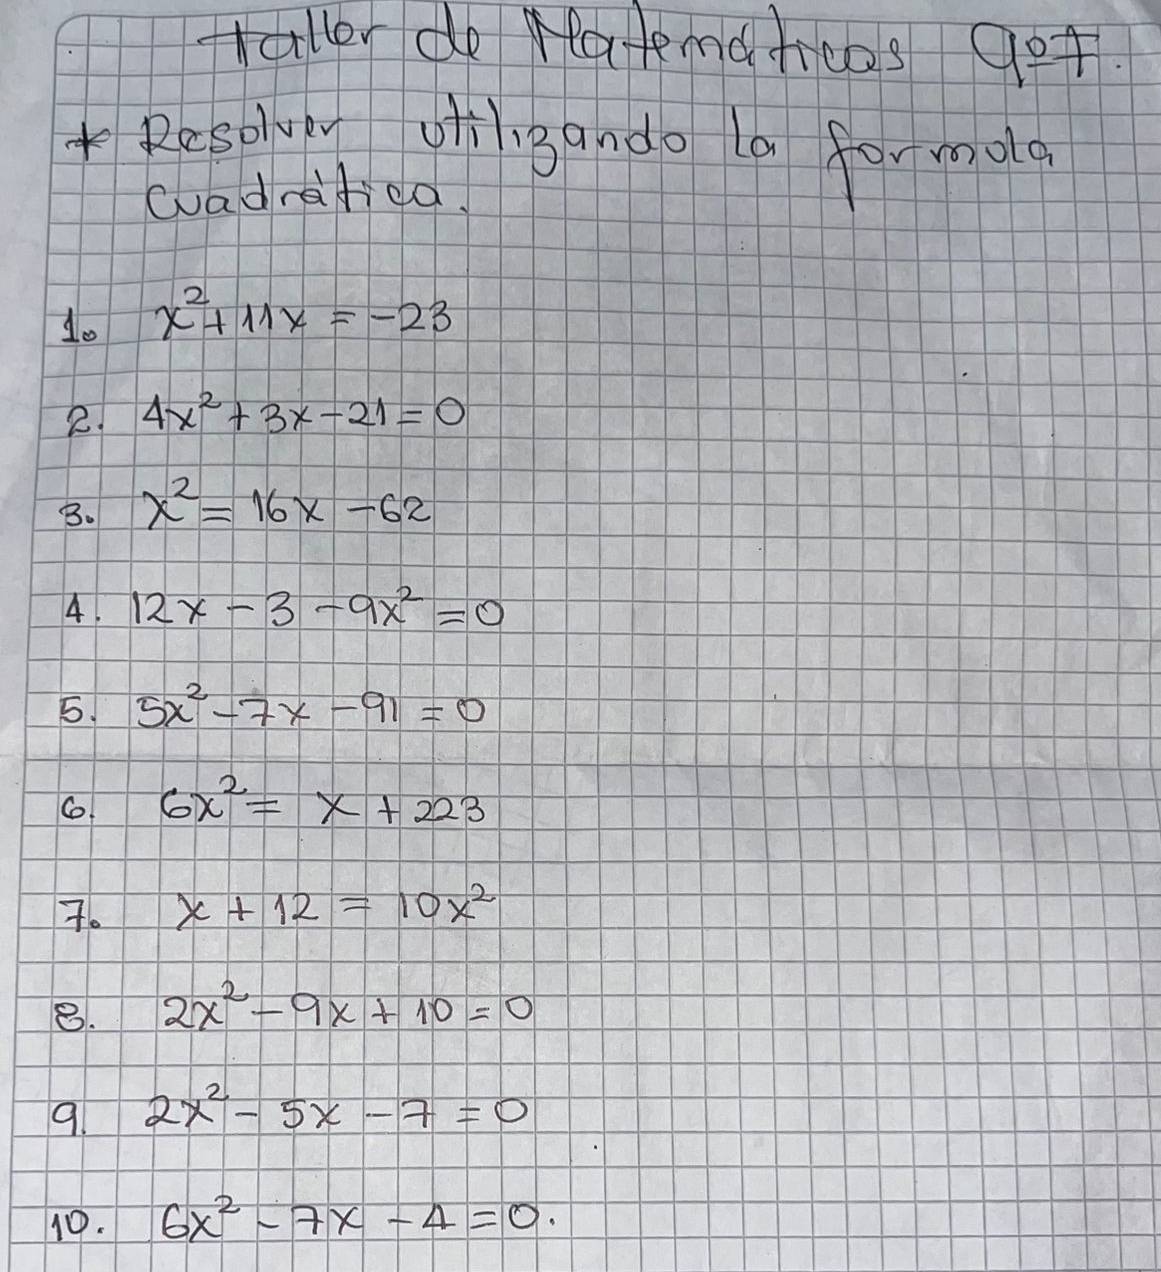 Taller de Matemáticas 9º7.
* Resolver utilizando la formula
cuadrática.
1. x² + 11x = -23
2. 4x² + 3x - 21 = 0
3. x² = 16x - 62
4. 12x - 3 - 9x² = 0
5. 5x² - 7x - 91 = 0
6. 6x² = x + 223
7. x + 12 = 10x²
8. 2x² - 9x + 10 = 0
9. 2x² - 5x - 7 = 0
10. 6x² - 7x - 4 = 0.